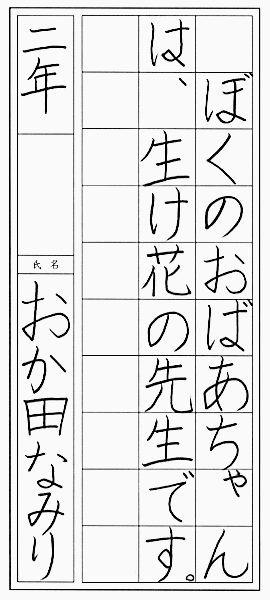 ぼくのおばあちゃん
は、生け花の先生です。
二年
氏名
おか田なみり